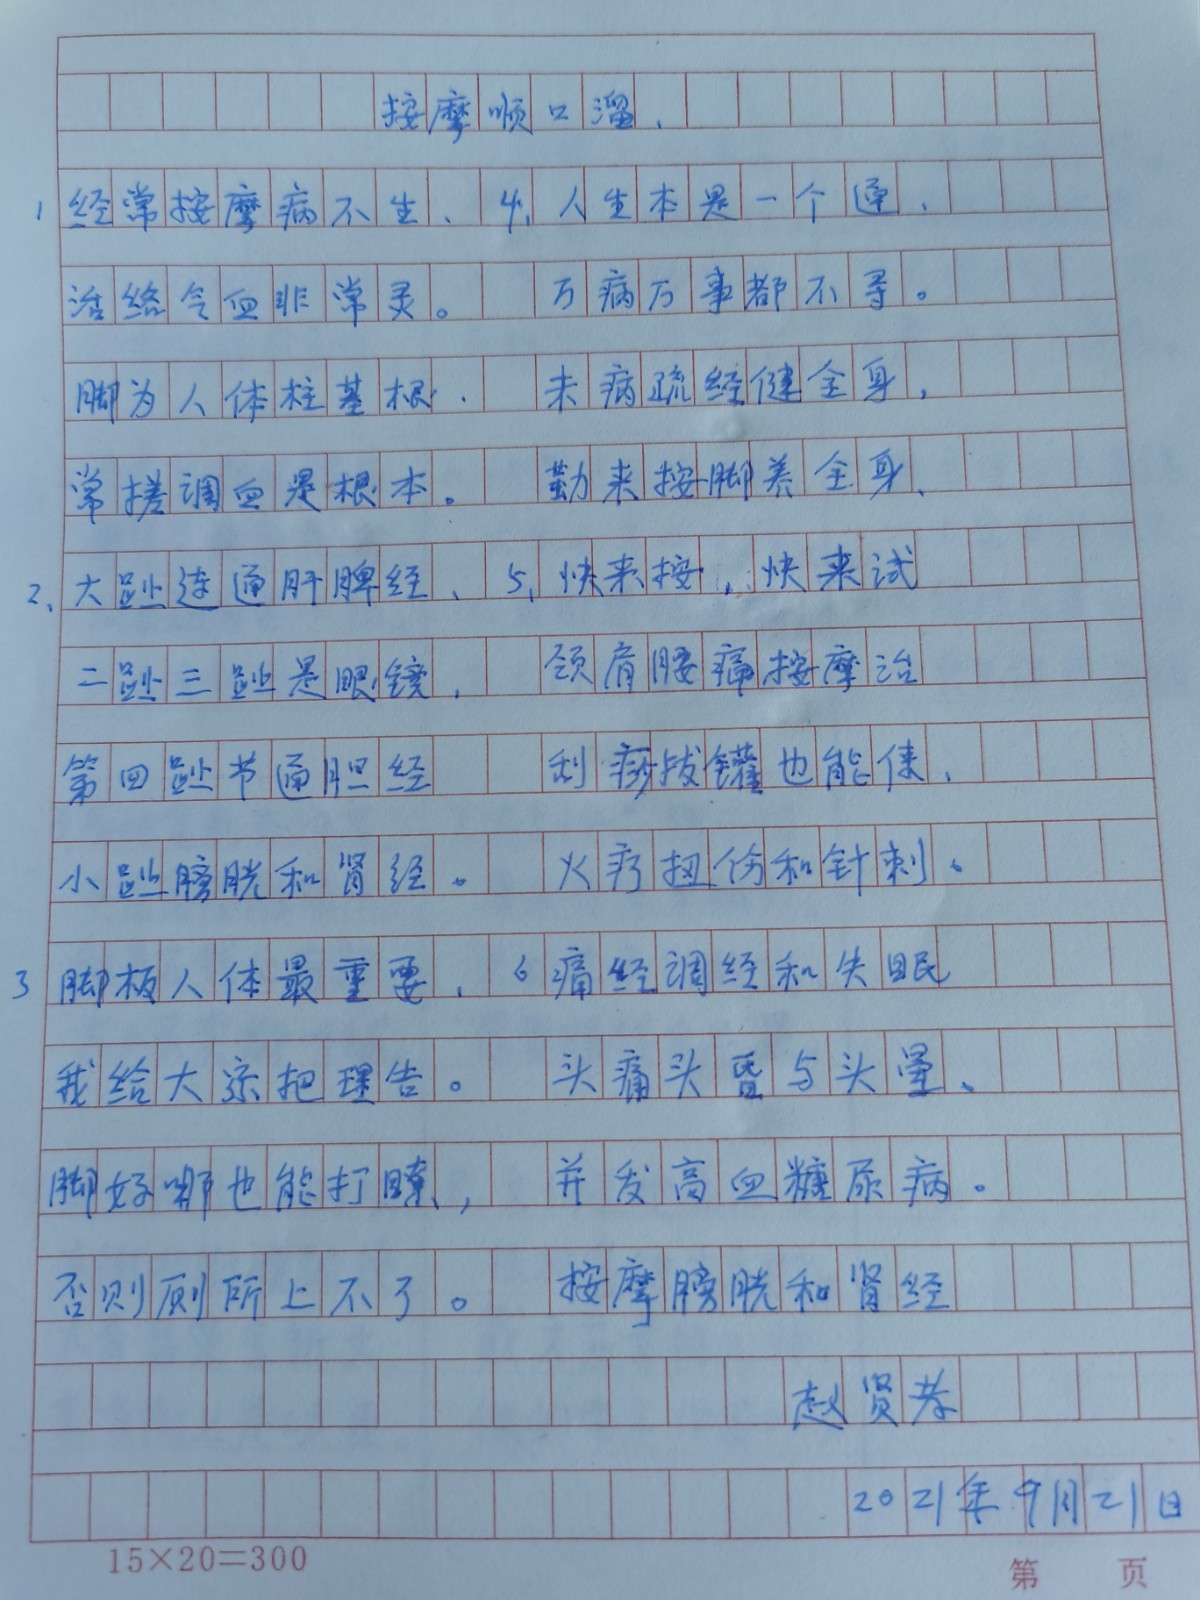 按摩顺口溜、
1 经常按摩病不生、
活络令血非常灵。
脚为人体柱基根.
常搓调血是根本。
2、大趾连通肝脾经、
二趾三趾是眼镜,
第四趾节通胆经
小趾膀胱和肾经。
3 脚板人体最重要、
我给大家把理告。
脚好哪也能打瞭,
否则厕所上不了。
4、人生本是一个通、
万病万事都不寻。
未病疏经健全身,
勤来按脚养全身、
5、快来按,快来试
颈肩腰痛按摩治
刮痧拔罐也能使、
火疗扭伤和针刺。
6 痛经调经和失眠
头痛头昏与头晕、
并发高血糖尿病。
按摩膀胱和肾经
赵贤恭
2021年9月21日
15×20=300
第 页